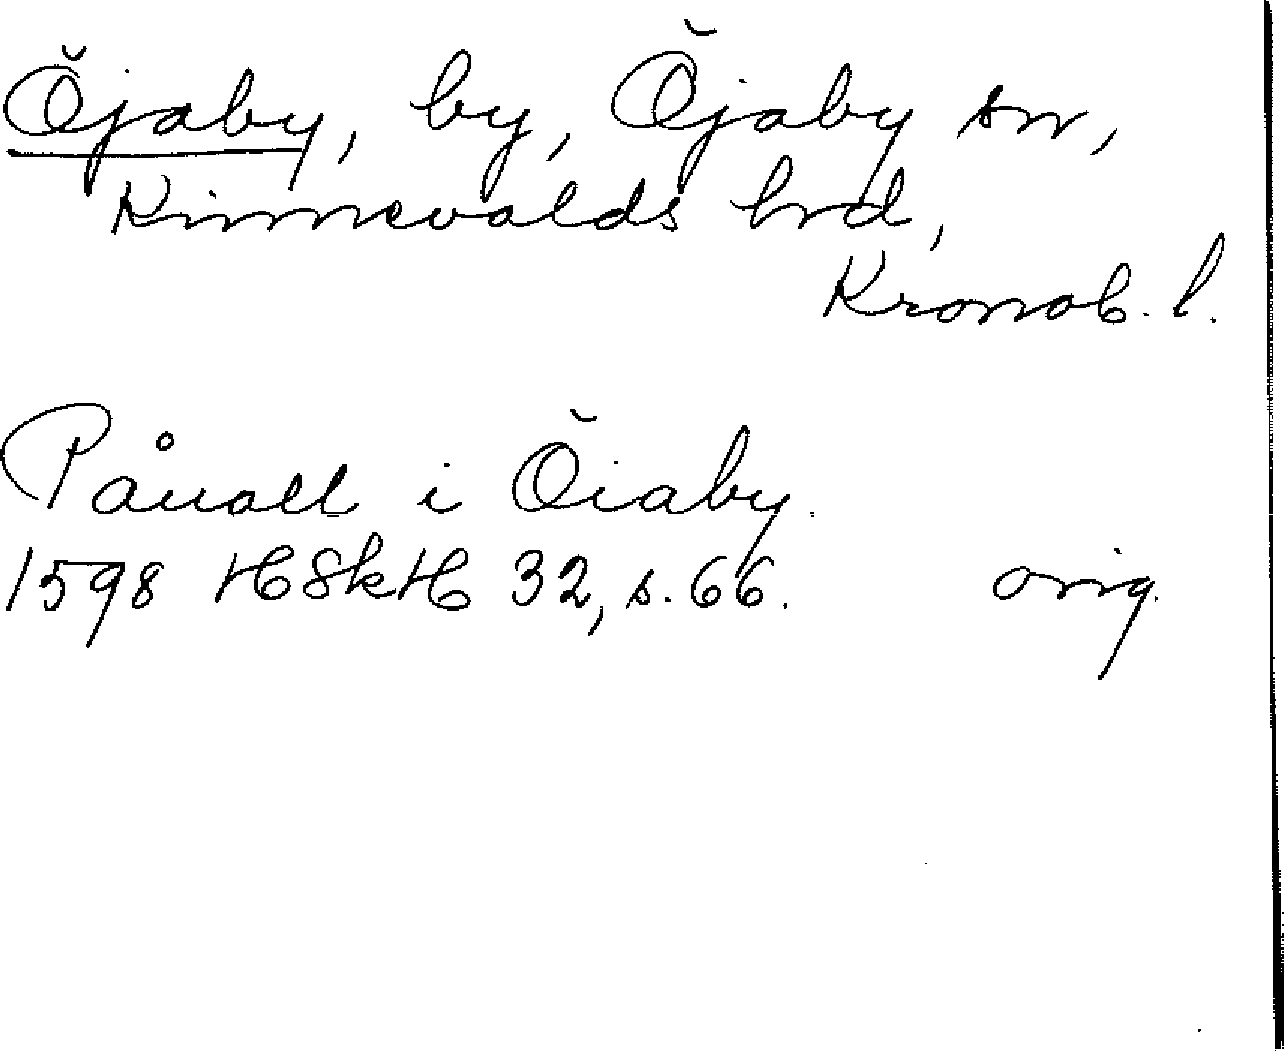 Öjaby, by, Öjaby sn,
Kinnevalds hrd,
Kronob. l.
Påuall i Öiaby.
1598 HSkH 32, s. 66. orig.